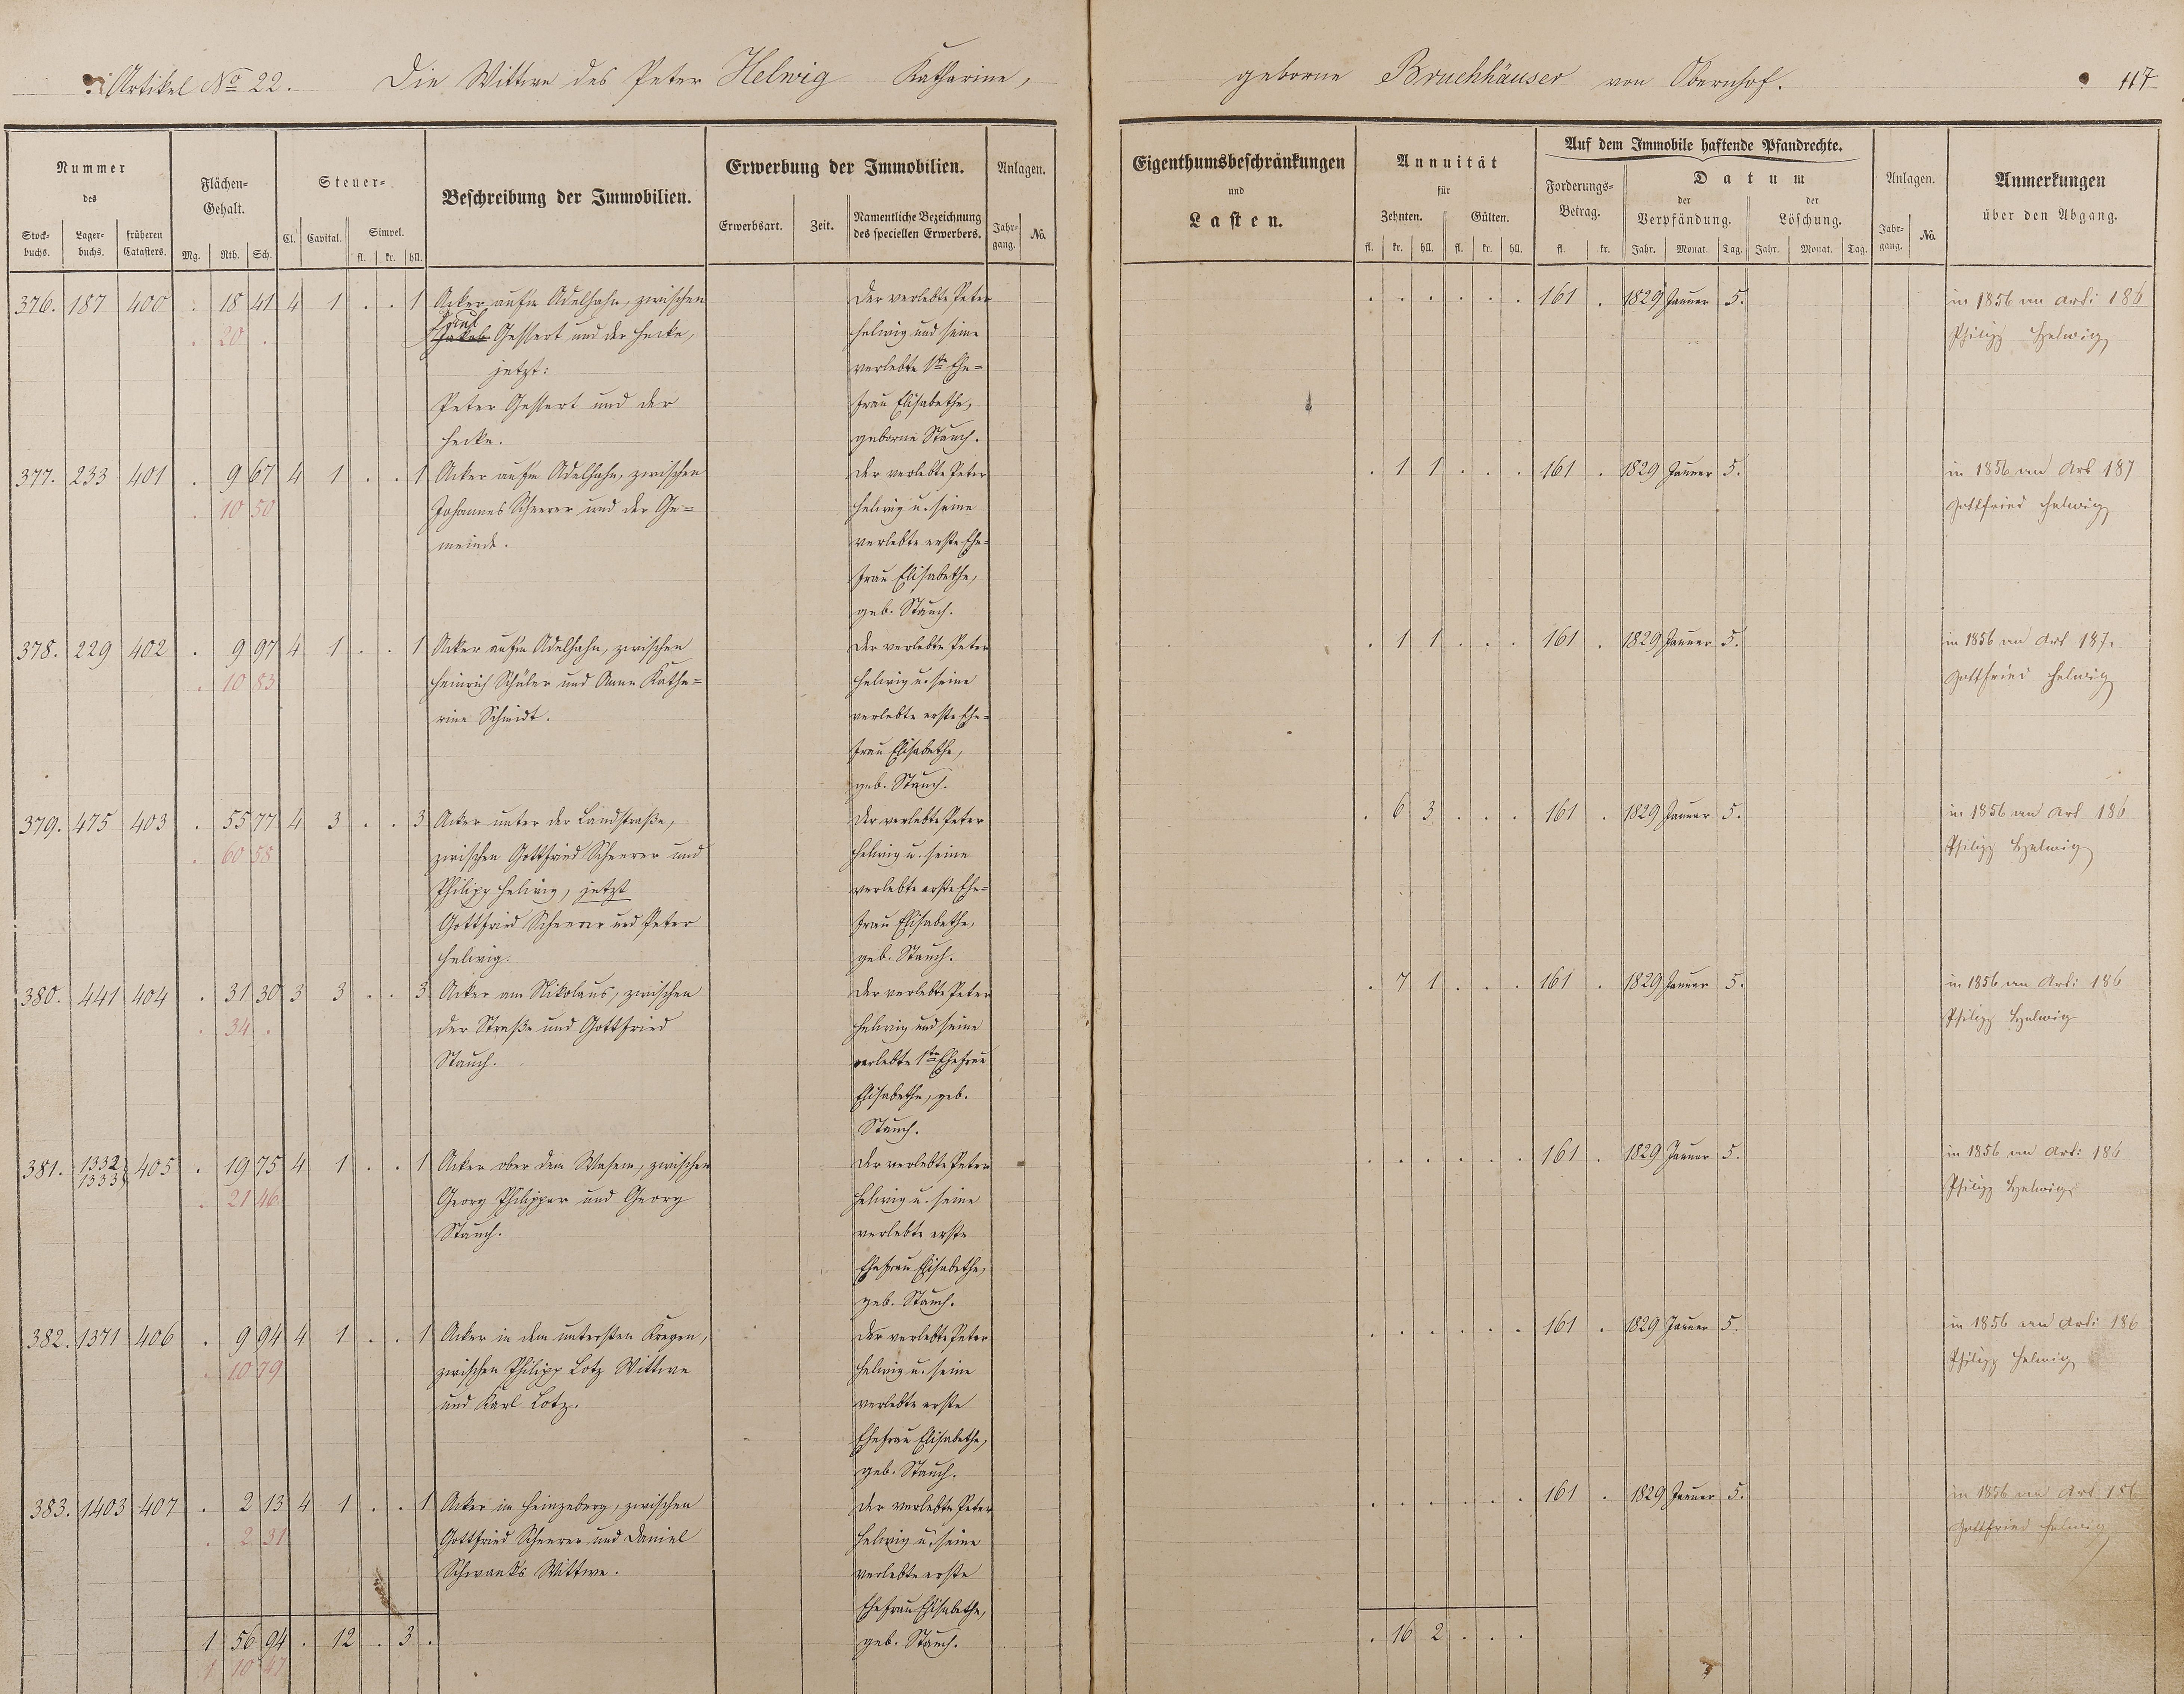 Artikel No 22. Die Wittwe des Peter Helwig Katharine, geborne Bruchhäuser von Obernhof. 117
Nummer des
Stockbuchs. Lagerbuchs. früheren Catasters.
Flächen-Gehalt.
Mg. Rth. Sch.
Steuer-
Cl. Capital. Simpel.
fl. kr. hll.
Beschreibung der Immobilien.
Erwerbung der Immobilien.
Erwerbsart. Zeit. Namentliche Bezeichnung des speciellen Erwerbers.
Anlagen.
Jahrgang. No.
Eigenthumsbeschränkungen
und
Lasten.
Annuität
für
Zehnten. Gülten.
fl. kr. hll. fl. kr. hll.
Auf dem Immobile haftende Pfandrechte.
Forderungs-Betrag.
fl. kr.
Datum
der Verpfändung. der Löschung.
Jahr. Monat. Tag. Jahr. Monat. Tag.
Anlagen.
Jahrgang. No.
Anmerkungen
über den Abgang.
376. 187 400 . 18 41 4 1 . . 1
. 20 .
Acker auf'm Adelhahn, zwischen
Jakob Gessert und der Hecke,
jetzt:
Peter Gessert und der
Hecke.
Der verlebte Peter
Helwig und seine
verlebte 1te Ehe=
frau Elisabethe,
geborne Stauch.
. . . . . . 161 . 1829 Januar 5.
in 1856 an Art: 186
Philipp Helwig
377. 233 401 . 9 67 4 1 . . 1
. 10 50
Acker auf'm Adelhahn, zwischen
Johannes Scheerer und der Ge=
meinde.
Der verlebte Peter
Helwig u. seine
verlebte erste Ehe=
frau Elisabethe,
geb. Stauch.
. 1 1 . . . 161 . 1829 Januar 5.
in 1856 an Art 187
Gottfried Helwig
378. 229 402 . 9 97 4 1 . . 1
. 10 83
Acker auf'm Adelhahn, zwischen
Heinrich Schüler und Anne Katha=
rine Schmidt.
Der verlebte Peter
Helwig u. seine
verlebte erste Ehe=
frau Elisabethe,
geb. Stauch.
. 1 1 . . . 161 . 1829 Januar 5.
in 1856 an Art 187.
Gottfried Helwig
379. 475 403 . 55 77 4 3 . . 3
. 60 58
Acker unter der Landstraße,
zwischen Gottfried Scheerer und
Philipp Helwig, jetzt
Gottfried Scheerer und Peter
Helwig.
Der verlebte Peter
Helwig u. seine
verlebte erste Ehe=
frau Elisabethe,
geb. Stauch.
. 6 3 . . . 161 . 1829 Januar 5.
in 1856 an Art 186
Philipp Helwig
380. 441 404 . 31 30 3 3 . . 3
. 34 .
Acker am Nikolaus, zwischen
der Straße und Gottfried
Stauch.
Der verlebte Peter
Helwig und seine
verlebte 1te Ehefrau
Elisabethe, geb.
Stauch.
. 7 1 . . . 161 . 1829 Januar 5.
in 1856 an Art: 186
Philipp Helwig
381. 1332 1333 405 . 19 75 4 1 . . 1
. 21 46
Acker ober dem Wasem, zwischen
Georg Philippar und Georg
Stauch.
Der verlebte Peter
Helwig u. seine
verlebte erste
Ehefrau Elisabethe,
geb. Stauch.
. . . . . . 161 . 1829 Januar 5.
in 1856 an Art: 186
Philipp Helwig
382. 1371 406 . 9 94 4 1 . . 1
. 10 79
Acker in dem untersten Kregen,
zwischen Philipp Lotz Wittwe
und Karl Lotz.
Der verlebte Peter
Helwig u. seine
verlebte erste
Ehefrau Elisabethe,
geb. Stauch.
. . . . . . 161 . 1829 Januar 5.
in 1856 an Art: 186
Philipp Helwig
383. 1403 407 . 2 13 4 1 . . 1
. 2 31
Acker im Heinzeberg, zwischen
Gottfried Scheerer und Daniel
Schwanks Wittwe.
Der verlebte Peter
Helwig u. seine
verlebte erste
Ehefrau Elisabethe,
geb. Stauch.
. . . . . . 161 . 1829 Januar 5.
in 1856 an Art 186
Gottfried Helwig
1 56 94 . 12 . 3 .
1 10 47
. 16 2 . . .